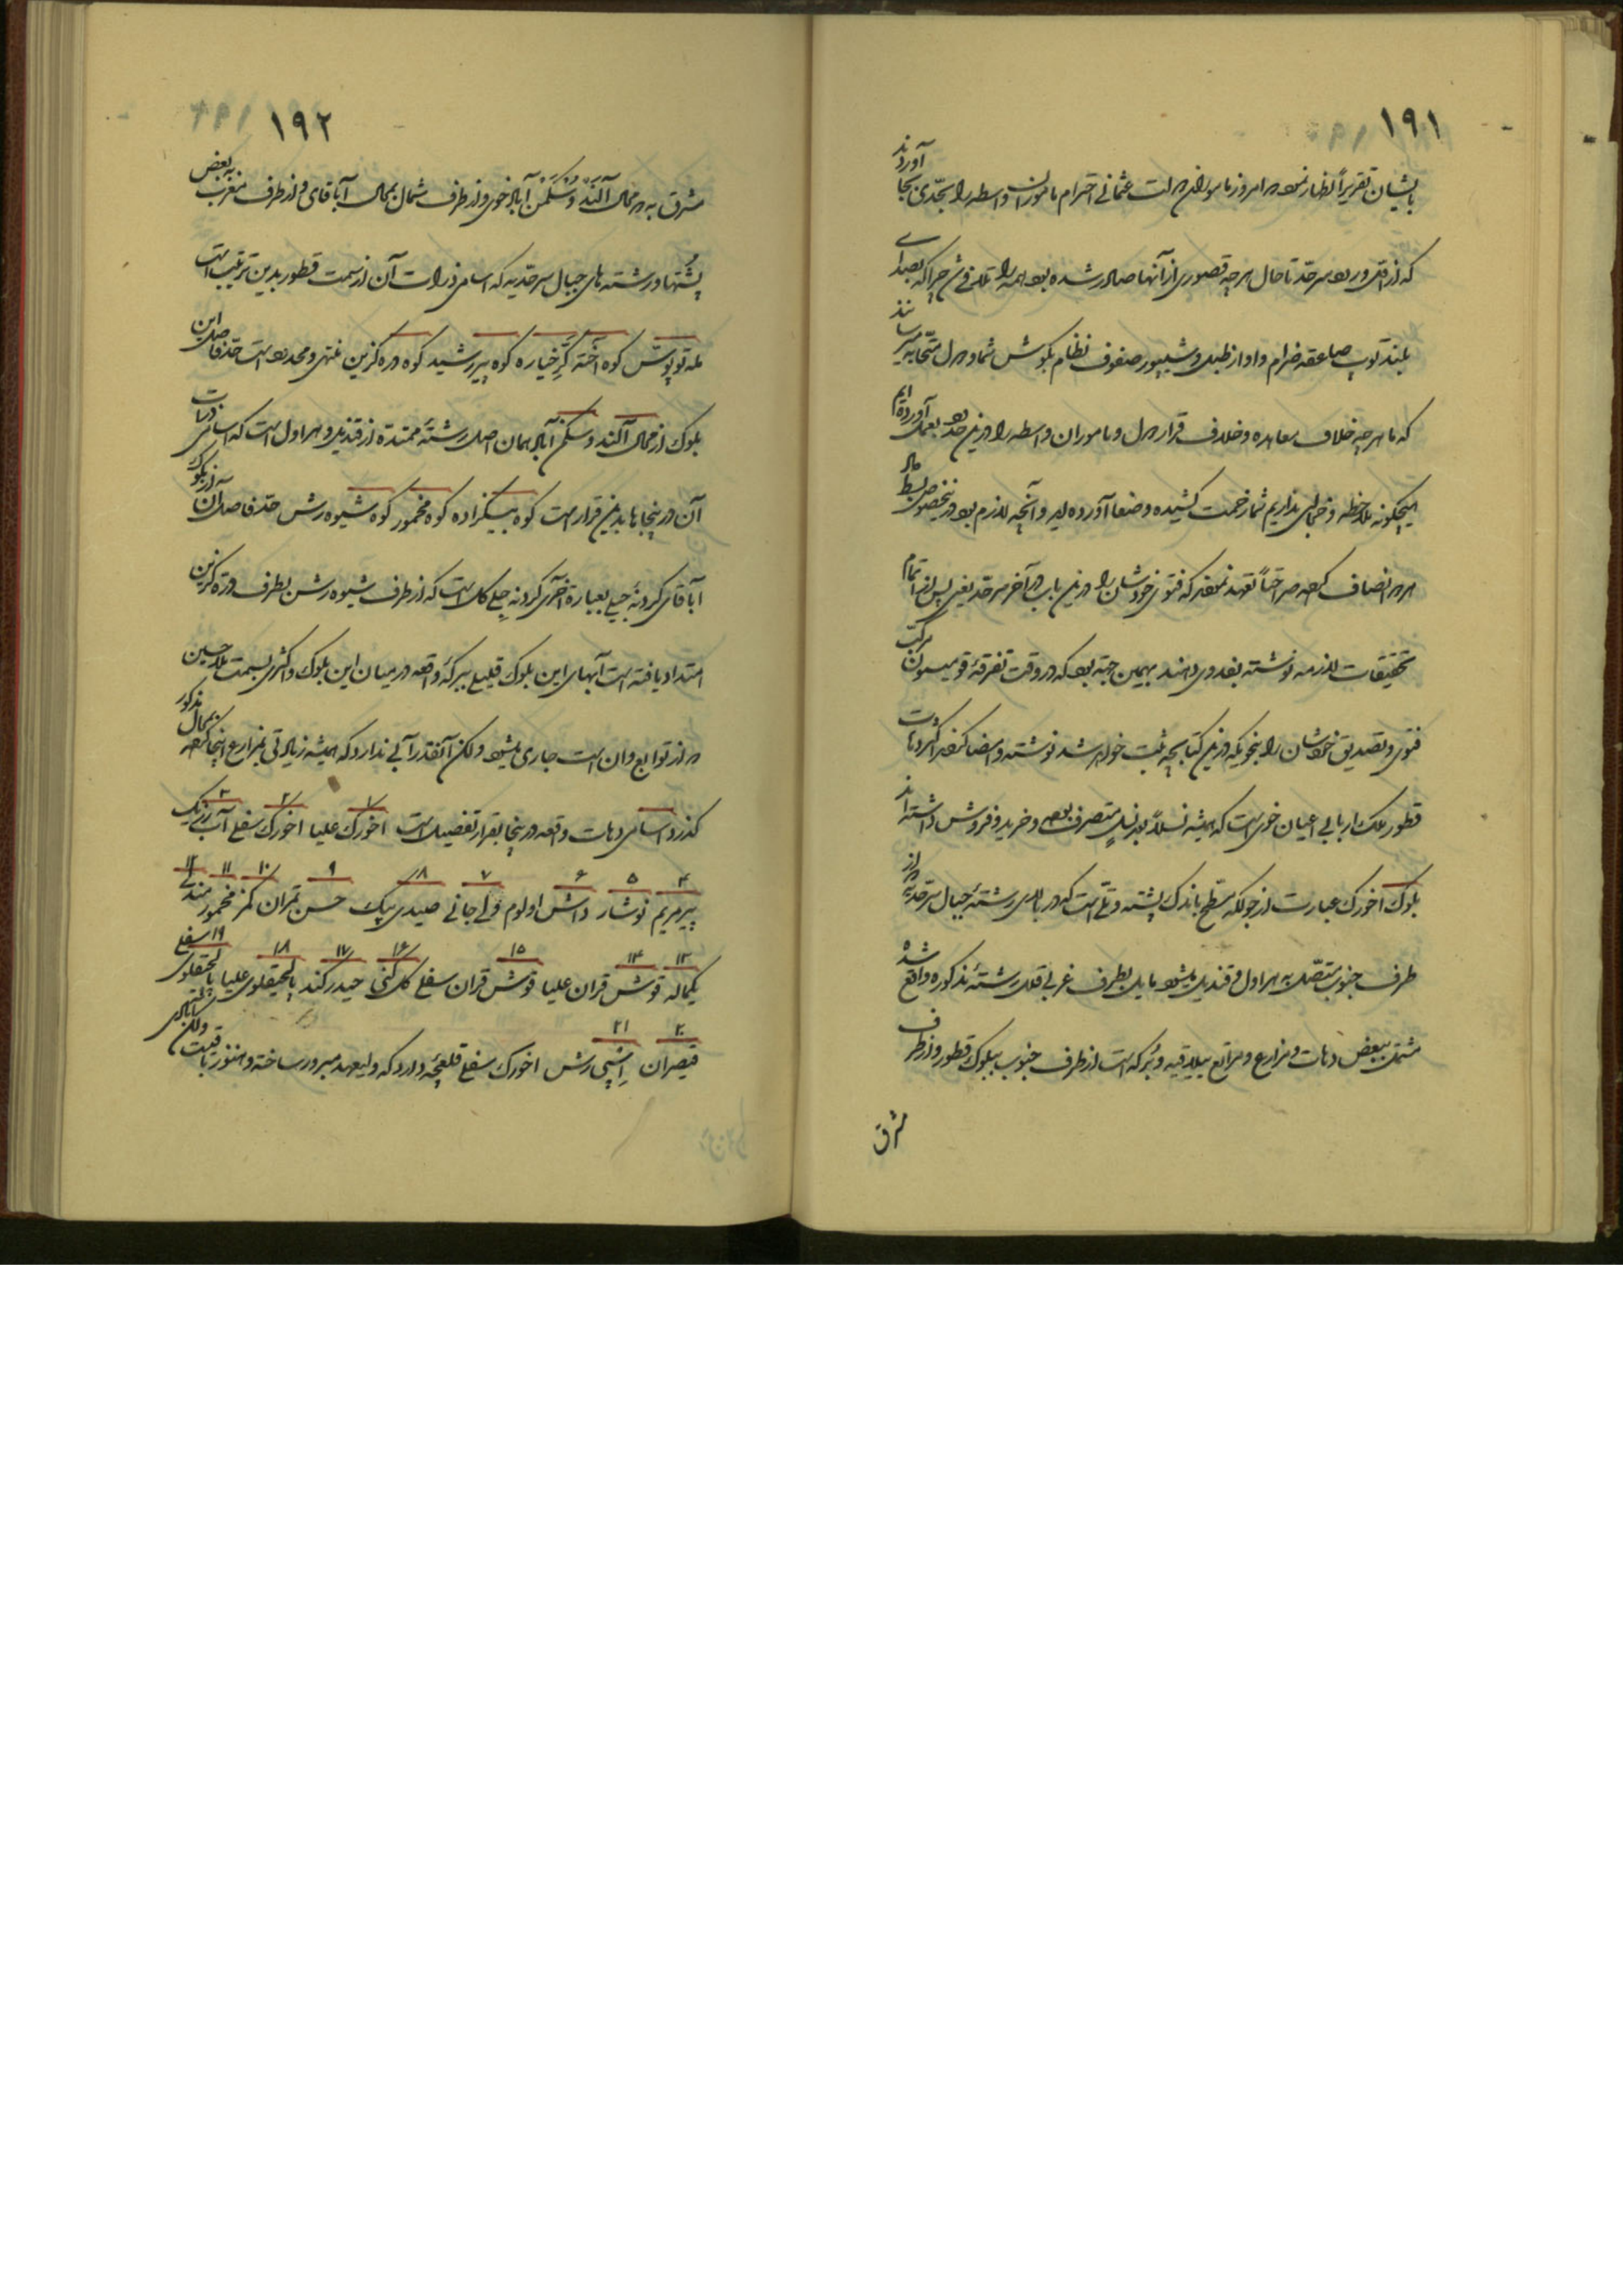 ۱۹۱
بایشان تقریراً اظهار نموده در امروز مامورین دولت عثمانی احترام مامورین واسطه را بجدّی بجا آوردند
که از اول ورود سرحد تا حال هرچه قصوری از آنها صادر شده بود همه را تلافی شد چرا که بصدای
بلند توپ صاعقه ضرام و اواز طبل و شیپور صفوف نظام بکوش شما و دول متحابه میرسانند
که ما هرچه خلاف معاهده و خلاف قرار دول و ماموران واسطه را درین حدود بعمل آورده‌ایم
هیچکونه ملاحظه و خیالی نداریم شما زحمت کشیده وضعا آورده‌اید و آنچه لازم بود درینخصوص بسط
انصاف کرده صراحتاً تعهد نمودند که فتوی خودشان را درین باب در آخر سرحد یعنی پس از اتمام
تحقیقات لازمه نوشته بعد وی دهند بهمین جهة بود که در وقت تفرقهٔ قومیسون مرکب
فتوی و تصدیق خودشان را بنحویکه درین کتابچه ثبت خواهد شد نوشته و امضا کردند اکثر دهات
قطور ملک اربابی اعیان خوی است که همیشه نسلاً بعد نسلٍ متصرف بوده و خرید و فروش داشته‌اند
بلوک آخورک عبارت از جولکه مسطح باندک پشته و تلّی است که در بالای رشتهٔ جبال سرحدیه در از
طرف جنوب متصل به هراول و قندیل میشود مایل بطرف غربی قلل رشتهٔ مذکوره واقع شده
مشتمل ببعض دهات و مزارع و مراتع ییلاقیه و برکه است از طرف جنوب ببلوک قطور و از طرف
شرق
۱۹۲
مشرق به در محال آلند و سکمن آباد خوی و از طرف شمال بمحال آباقای و از طرف مغرب به بعض
پشتها و رشته‌های جبال سرحدیه که اسامی ذروات آن از سمت قطور بدین ترتیب است
مله توپوش کوه اخته کرخیاره کوه پیر رشید کوه دره کزین منتهی و محدود است حدّ فاصل این
بلوک از محال آلند و سکمن آباد همان اصل رشتهٔ ممتدهٔ از قندیل و هراول است که اسامی ذروات
آن در اینجاها بدینقرار است کوه بیکزاده کوه مخمور کوه شیوه رش حدّ فاصل آن از بلوک
آباقای کردنهٔ چلی بعبارة اخری کردنه چلی کل است که از طرف شیوه رش بطرف دره کزین
امتداد یافته است آبهای این بلوک قلیلی ببرکهٔ واقعه در میان این بلوک و اکثری بسمت ملاحسین
در از توابع وان است جاری میشود ولکن آنقدر آبی ندارد که همیشه زیادتی بمزارع اینجا کرده بمحال مذکور
کذرد اسامی دهات واقعه در اینجا بقرار تفصیل است ۱ اخورک علیا ۲ اخورک سفلی ۳ آب رزیک
۴ پیر مریم ۵ نوشار ۶ داش اولوم ۷ ولی جانی ۸ صیدی بیک ۹ حسن تمران ۱۰ کمز ۱۱ مخمور ۱۲ مندلی
۱۳ یکماله ۱۴ قوش قران علیا ۱۵ قوش قران سفلی ۱۶ کل کنی ۱۷ حیدر کند ۱۸ بالجیقلوی علیا ۱۹ بالجیقلوی سفلی
۲۰ قیصران ۲۱ اسپی رش اخورک سفلی قلعچهٔ دارد که ولیعهد مبرور ساخته و هنوز باقیست ولکن